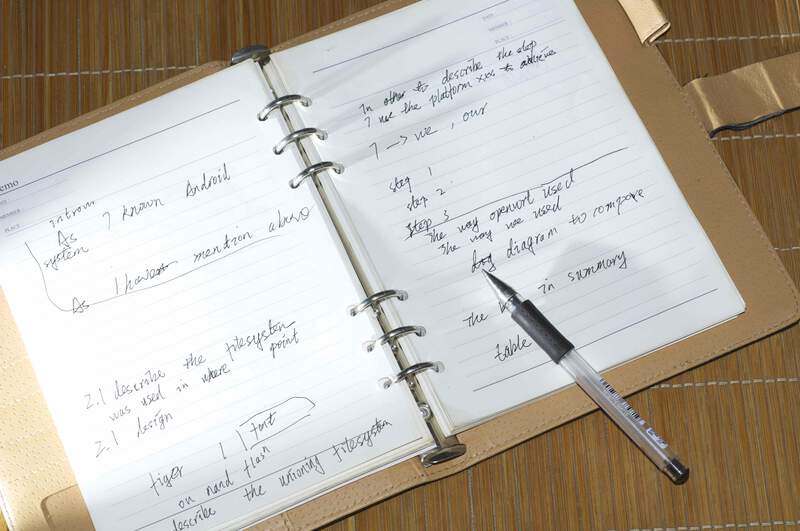 emo
introm
As
system I known Android
As I have mention above
2.1 describe the filesystem
was used in where point
2.1 design
tiger font
on nand flash
describe the unioning filesystem
DATE
NUMBER
PLACE
In other to describe the step
I use the platform xxx to achieve
I -> we, our
step 1
step 2
step 3
The way openwrt used
The way we used
diagram to compare
The in summary
table